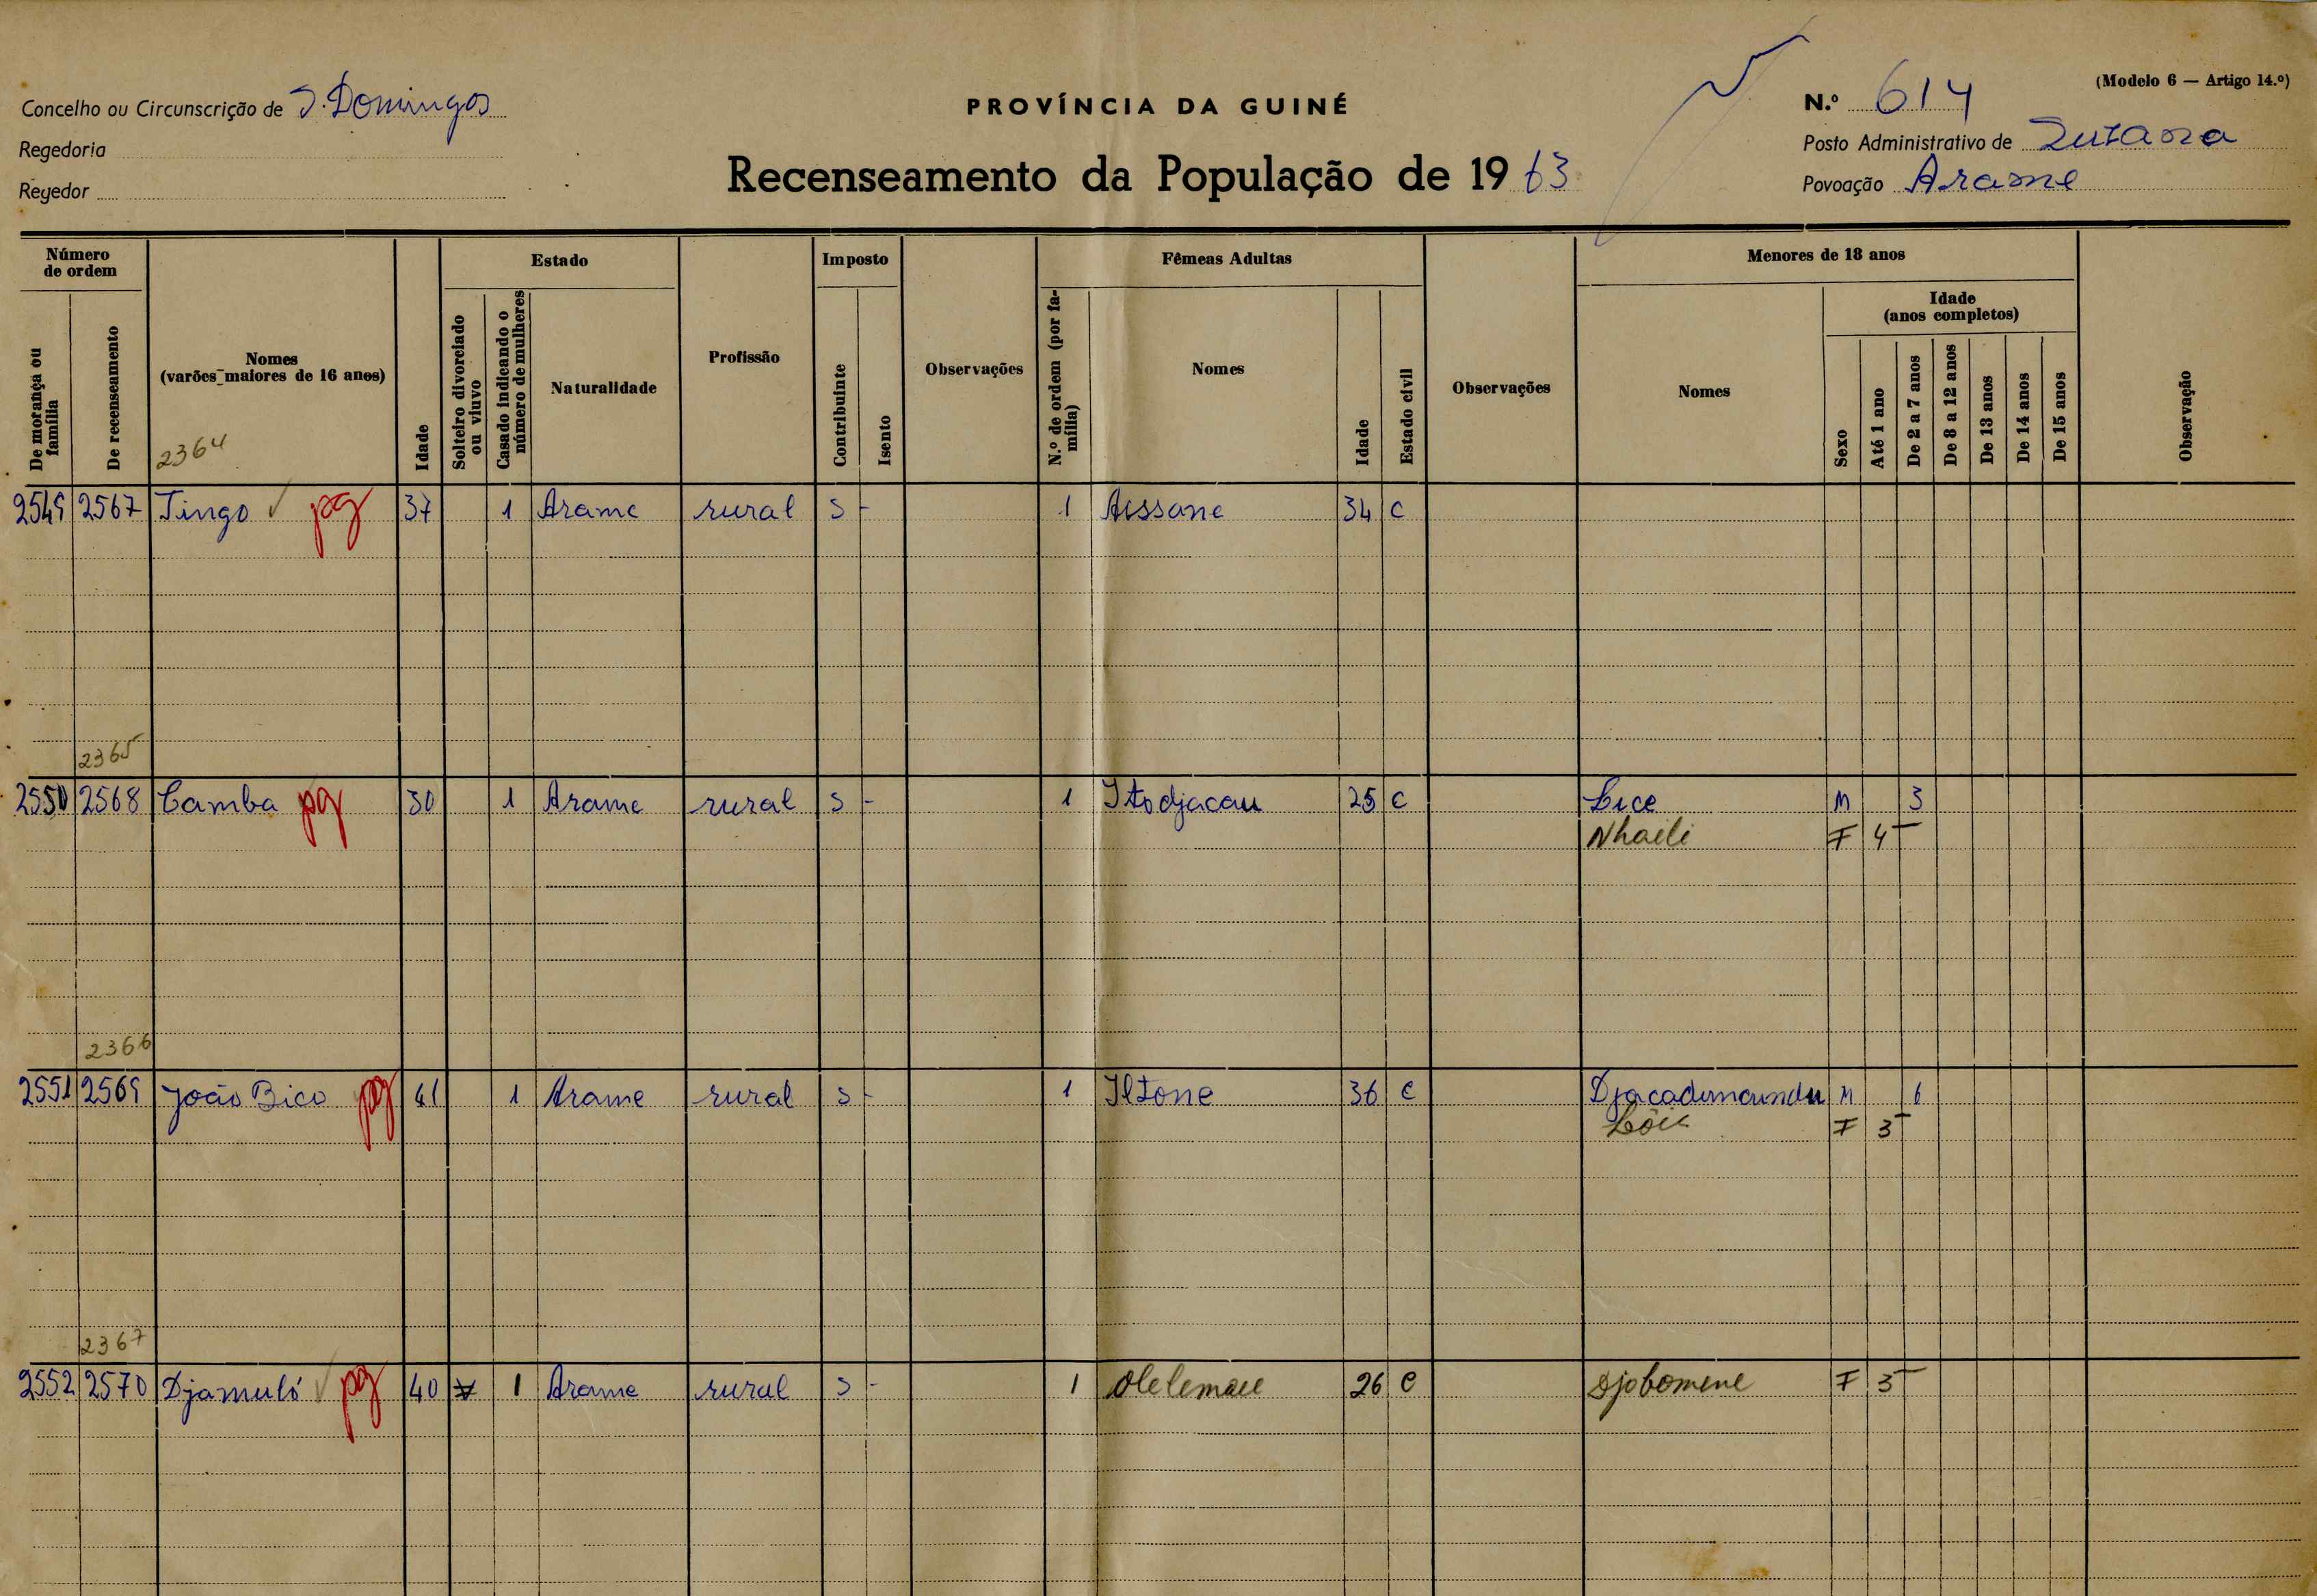 (Modelo 6 — Artigo 14.º)
Concelho ou Circunscrição de S. Domingos
PROVÍNCIA DA GUINÉ
N.º 614
Regedoria
Posto Administrativo de Suzana
Regedor
Recenseamento da População de 1963
Povoação Arame
Número de ordem
Estado
Imposto
Fêmeas Adultas
Menores de 18 anos
Idade (anos completos)
De morança ou família
De recenseamento
Nomes (varões maiores de 16 anos)
Idade
Solteiro divorciado ou viuvo
Casado indicando o número de mulheres
Naturalidade
Profissão
Contribuinte
Isento
Observações
N.º de ordem (por família)
Nomes
Idade
Estado civil
Observações
Nomes
Sexo
Até 1 ano
De 2 a 7 anos
De 8 a 12 anos
De 13 anos
De 14 anos
De 15 anos
Observação
2364
2549 2567 Tingo pg 37 1 Arame rural S - 1 Aissane 34 C
2365
2550 2568 Camba pg 30 1 Arame rural S - 1 Itodjacau 25 C Lice M 3
Nhaili F 4
2366
2551 2569 João Bico pg 41 1 Arame rural S - 1 Iltone 36 C Djacadimaundu M 6
F 3
2367
2552 2570 Djamuló pg 40 1 Arame rural S - 1 26 C Djobomene F 3